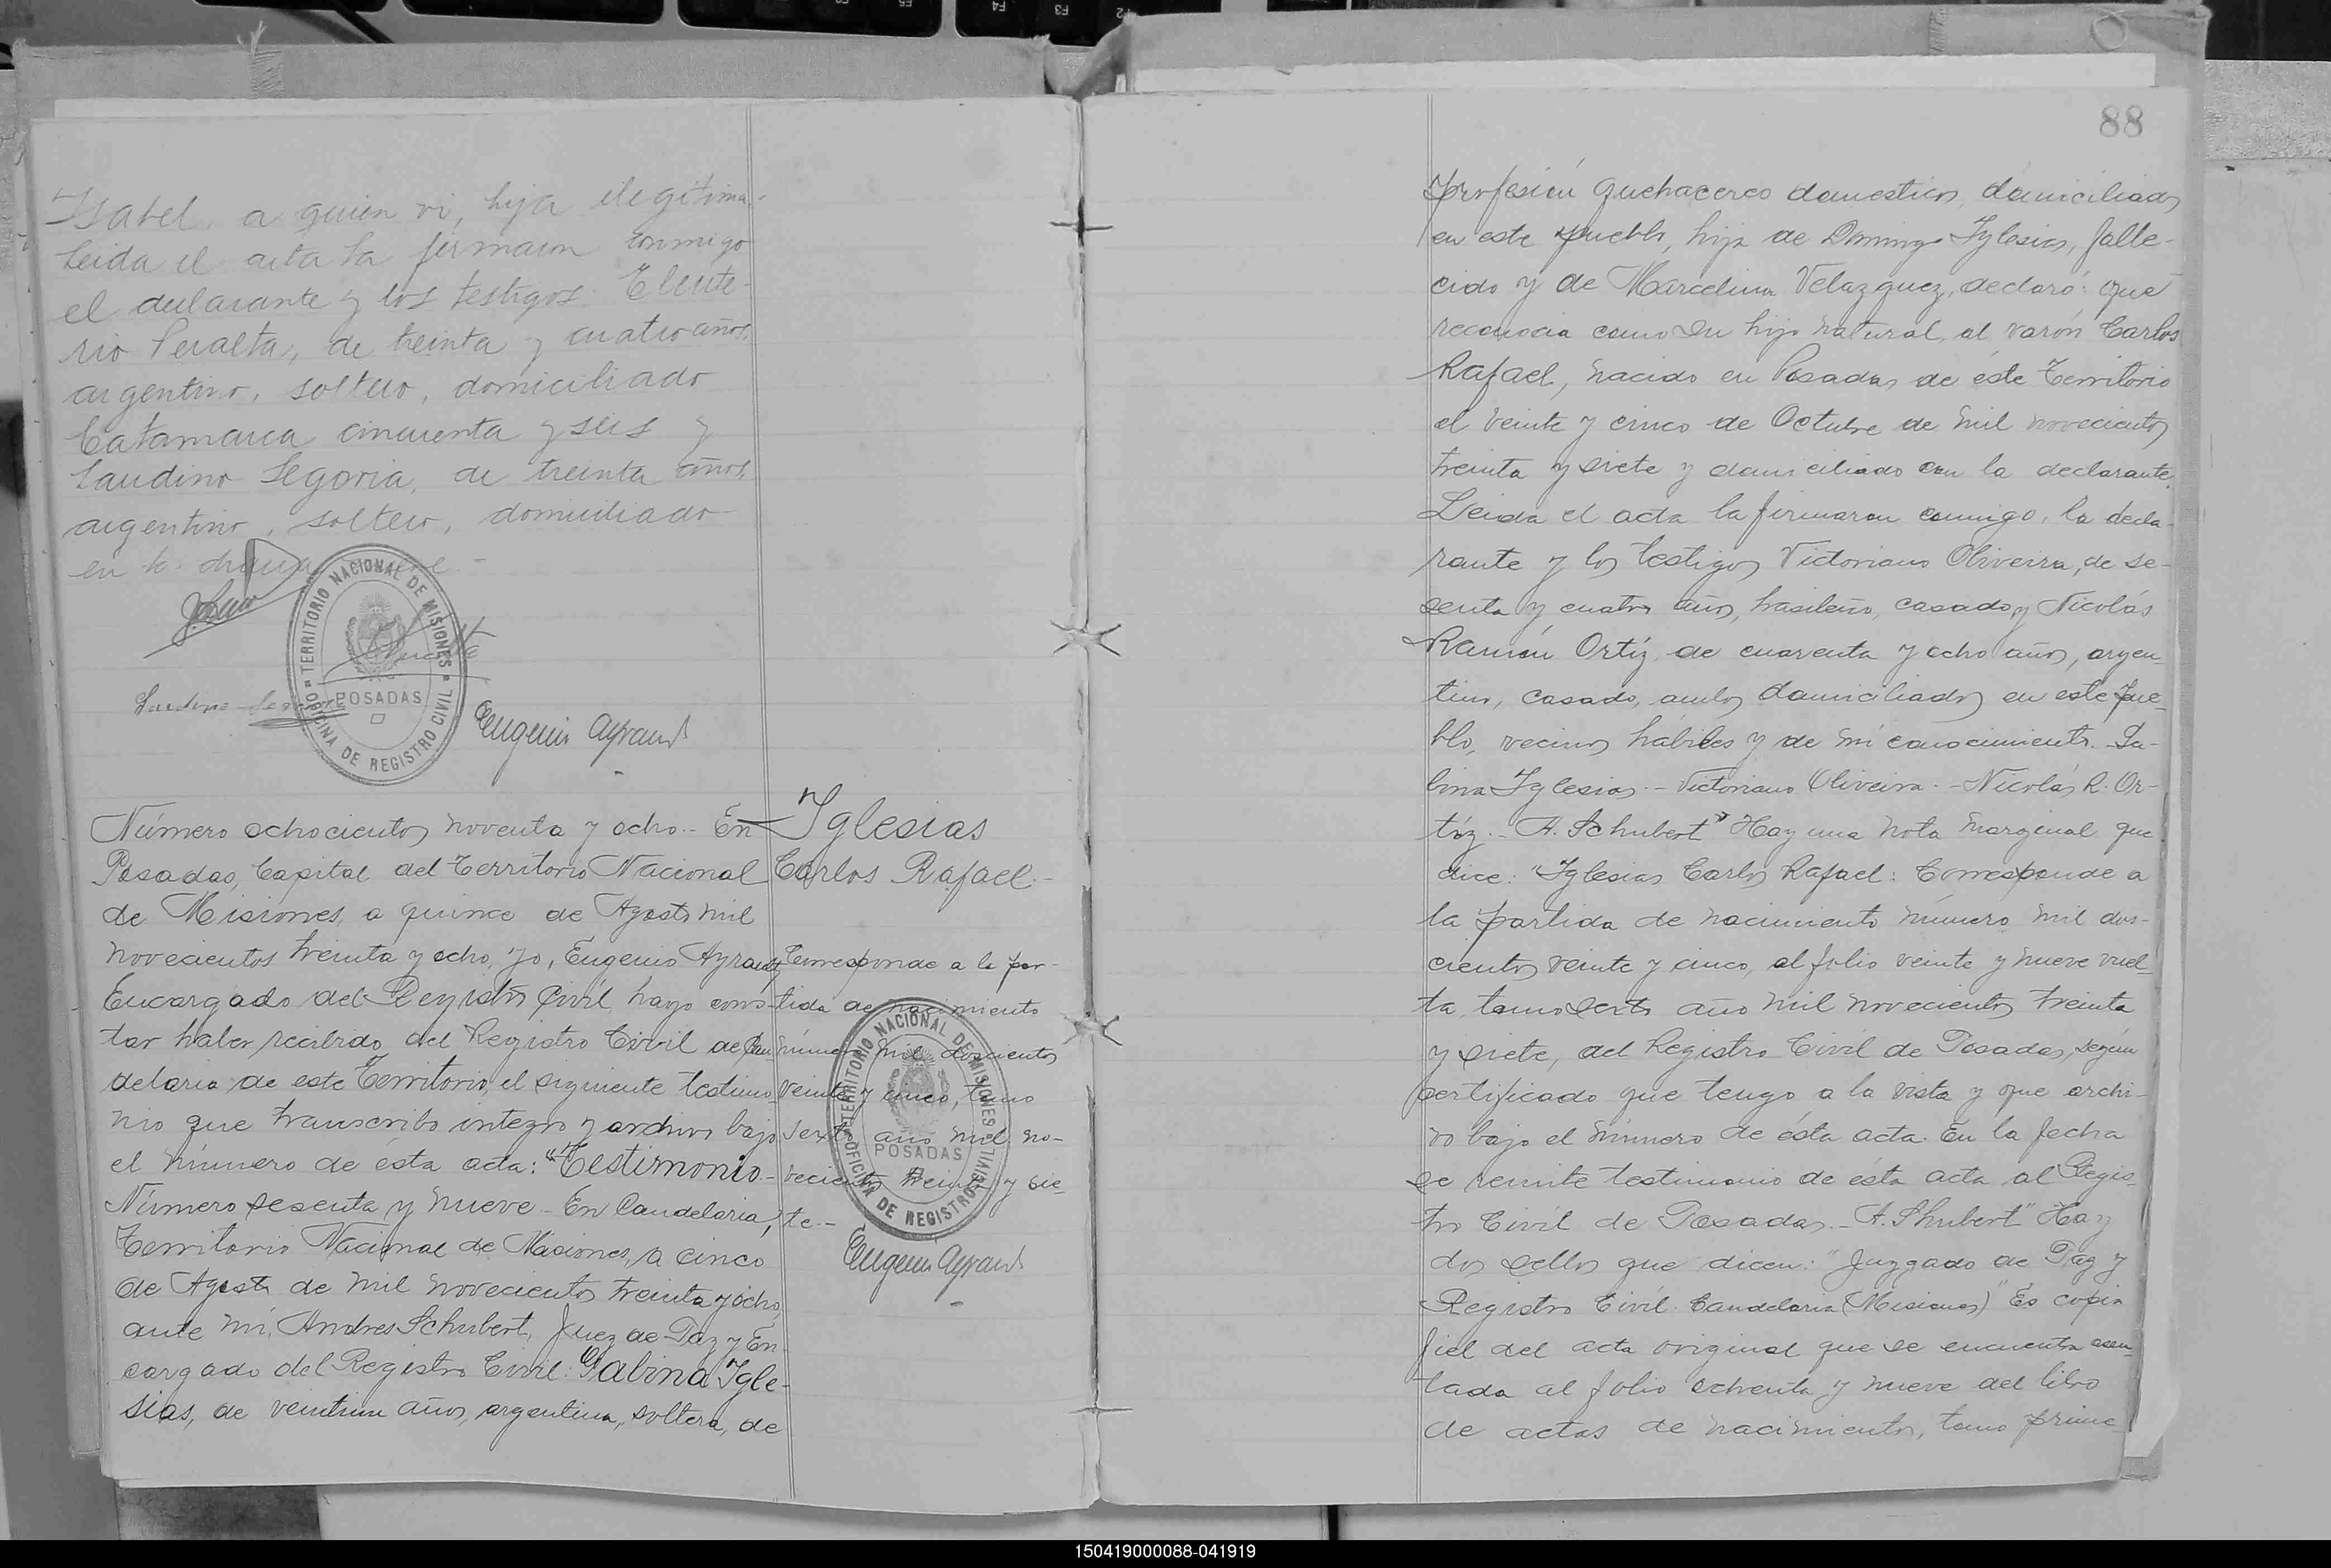 Isabel, a quien vi, hija ilegitima-
Leida el acta la firmaron conmigo
el declarante y los testigos Eleute-
rio Peralta, de treinta y cuatro años,
argentino, soltero, domiciliado
Catamarca cincuenta y seis y
Laudino Segovia, de treinta años,
argentino, soltero, domiciliado
en la
TERRITORIO NACIONAL DE MISIONES
POSADAS
OFICINA DE REGISTRO CIVIL
Eugenio Ayrault
Número ochocientos noventa y ocho.- En
Posadas, Capital del Territorio Nacional
de Misiones, a quince de Agosto mil
novecientos treinta y ocho, yo, Eugenio Ayrault
Encargado del Registro Civil, hago cons-
tar haber recibido del Registro Civil de Can
delaria de este Territorio, el siguiente testimo-
nio que transcribo integro y archivo bajo
el número de ésta acta: "Testimonio.-
Número sesenta y nueve.- En Candelaria,
Territorio Nacional de Misiones, a cinco
de Agosto de mil novecientos treinta y ocho,
ante mí, Andres Schubert, Juez de Paz y En-
cargado del Registro Civil: Sabina Igle-
sias, de veintiun años, argentina, soltera, de
Iglesias
Carlos Rafael.-
Corresponde a la par-
tida de nacimiento
número mil doscientos
veinte y cinco, tomo
sexto año mil no-
vecientos treinta y sie-
te.-
TERRITORIO NACIONAL DE MISIONES
POSADAS
OFICINA DE REGISTRO CIVIL
Eugenio Ayrault
88
profesión quehaceres domesticos, domiciliada
en este pueblo, hija de Domingo Iglesias, falle-
cido y de Marcelina Velazquez, declaró: que
reconocia como su hijo natural, al varón Carlos
Rafael, nacido en Posadas de éste Territorio
el veinte y cinco de Octubre de mil novecientos
treinta y siete y domiciliado con la declarante.
Leida el acta la firmaron conmigo, la decla-
rante y los testigos Victoriano Oliveira, de se-
senta y cuatro años, brasileño, casado y Nicolás
Ramón Ortíz, de cuarenta y ocho años, argen-
tino, casado, ambos domiciliados en este pue-
blo, vecinos hábiles y de mi conocimiento.- Sa-
bina Iglesias.- Victoriano Oliveira.- Nicolás R. Or-
tíz.- A. Schubert" Hay una nota marginal que
dice: "Iglesias Carlos Rafael: Corresponde a
la partida de nacimiento número mil dos-
cientos veinte y cinco, al folio veinte y nueve vuel-
ta, tomo sexto año mil novecientos treinta
y siete, del Registro Civil de Posadas, según
certificado que tengo a la vista y que archi-
vo bajo el número de ésta acta. En la fecha
se remite testimonio de ésta acta al Regis-
tro Civil de Posadas.- A. Shubert" Hay
dos sellos que dicen: "Juzgado de Paz y
Registro Civil. Candelaria (Misiones)" Es copia
fiel del acta original que se encuentra asen-
tada al folio ochenta y nueve del libro
de actas de nacimientos, tomo prime-
150419000088-041919